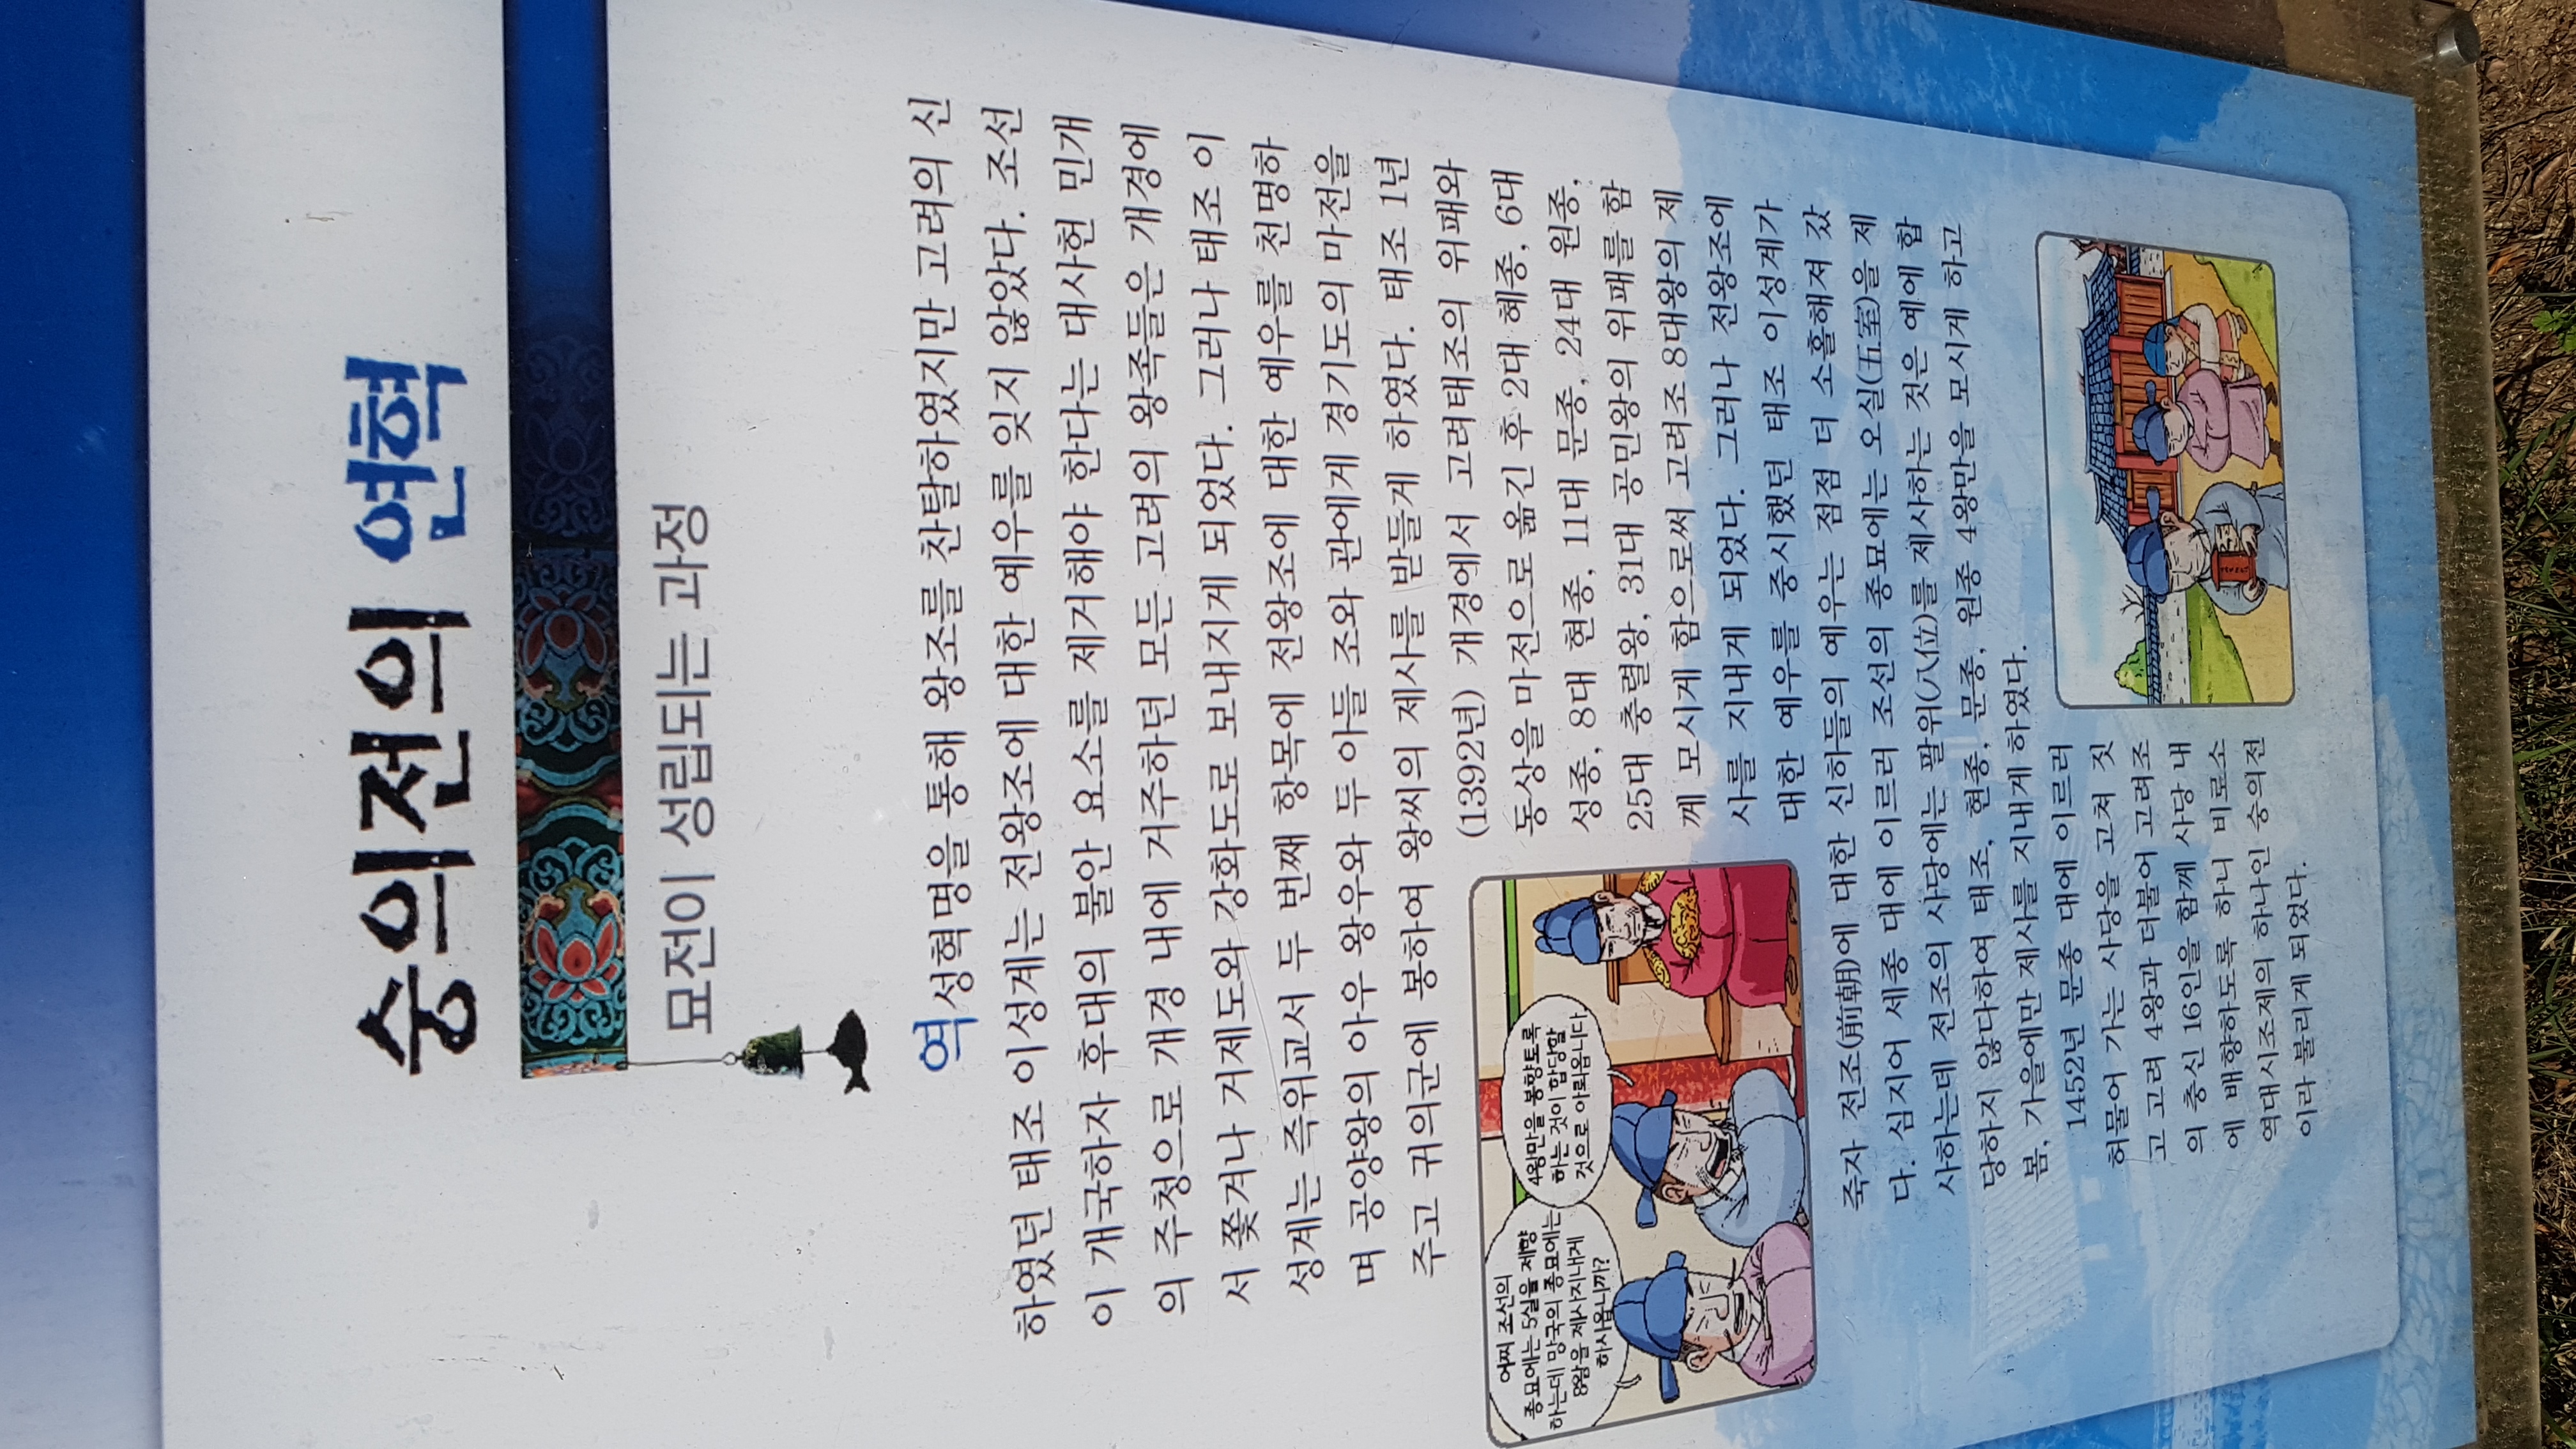 숭의전의 연혁
묘전이 성립되는 과정
역성혁명을 통해 왕조를 찬탈하였지만 고려의 신
하였던 태조 이성계는 전왕조에 대한 예우를 잊지 않았다. 조선
이 개국하자 후대의 불안 요소를 제거해야 한다는 대사헌 민개
의 주청으로 개경 내에 거주하던 모든 고려의 왕족들은 개경에
서 쫓겨나 거제도와 강화도로 보내지게 되었다. 그러나 태조 이
성계는 즉위교서 두 번째 항목에 전왕조에 대한 예우를 천명하
며 공양왕의 아우 왕우와 두 아들 조와 관에게 경기도의 마전을
주고 귀의군에 봉하여 왕씨의 제사를 받들게 하였다. 태조 1년
(1392년) 개경에서 고려태조의 위패와
동상을 마전으로 옮긴 후 2대 혜종, 6대
성종, 8대 현종, 11대 문종, 24대 원종,
25대 충렬왕, 31대 공민왕의 위패를 함
께 모시게 함으로써 고려조 8대왕의 제
사를 지내게 되었다. 그러나 전왕조에
대한 예우를 중시했던 태조 이성계가
죽자 전조(前朝)에 대한 신하들의 예우는 점점 더 소홀해져 갔
다. 심지어 세종 대에 이르러 조선의 종묘에는 오실(五室)을 제
사하는데 전조의 사당에는 팔위(八立)를 제사하는 것은 예에 합
당하지 않다하여 태조, 현종, 문종, 원종 4왕만을 모시게 하고
봄, 가을에만 제사를 지내게 하였다.
1452년 문종 대에 이르러
허물어 가는 사당을 고쳐 짓
고 고려 4왕과 더불어 고려조
의 충신 16인을 함께 사당 내
에 배향하도록 하니 비로소
역대시조제의 하나인 숭의전
이라 불리게 되었다.
어찌 조선의
종묘에는 5실을 제향
하는데 망국의 종묘에는
8왕을 제사지내게
하사옵니까?
4왕만을 봉향토록
하는 것이 합당할
것으로 아뢰옵니다